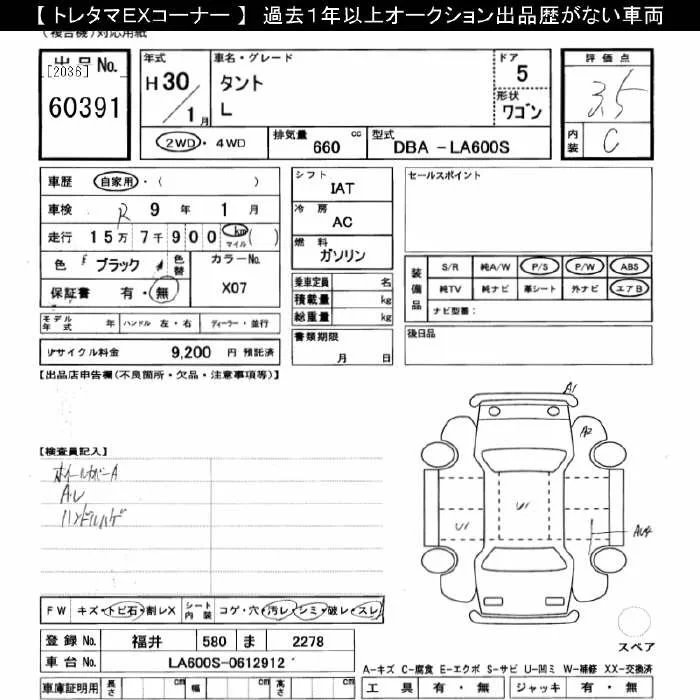 【 トレタマEXコーナー 】 過去1年以上オークション出品歴がない車両
(複合機)対応用紙
出品No.
[2036]
60391
年式
H30/1月
車名・グレード
タント
L
ドア
5
形状
ワゴン
2WD・4WD
排気量 660 cc
型式 DBA-LA600S
評価点
3.5
内装 C
車歴 自家用・( )
車検 R 9年 1月
走行 15万7千900 km マイル ( )
色 ブラック 色替 カラーNo.
保証書 有・無 X07
モデル年式 年 ハンドル 左・右 ディーラー・並行
リサイクル料金 9,200 円 預託済
シフト
IAT
冷房
AC
燃料
ガソリン
乗車定員 名
積載量 kg
総重量 kg
書類期限
月 日
セールスポイント
装備品 S/R 純A/W P/S P/W ABS
純TV 純ナビ 革シート 外ナビ エアB
ナビ型番:
後日品
【出品店申告欄(不良箇所・欠品・注意事項等)】
【検査員記入】
ホイールカバーA
A.U
ハンドルハゲ
A1
A2
U1
U1
AU4
スペア
FW キズ・トビ石・割レX シート内装 コゲ・穴・汚レ・シミ・破レ・スレ
登録No. 福井 580 ま 2278
車台No. LA600S-0612912
車庫証明用 長さ cm 幅 cm 高さ cm
A-キズ C-腐食 E-エクボ S-サビ U-凹ミ W-補修 XX-交換済
工具 有・無 ジャッキ 有・無